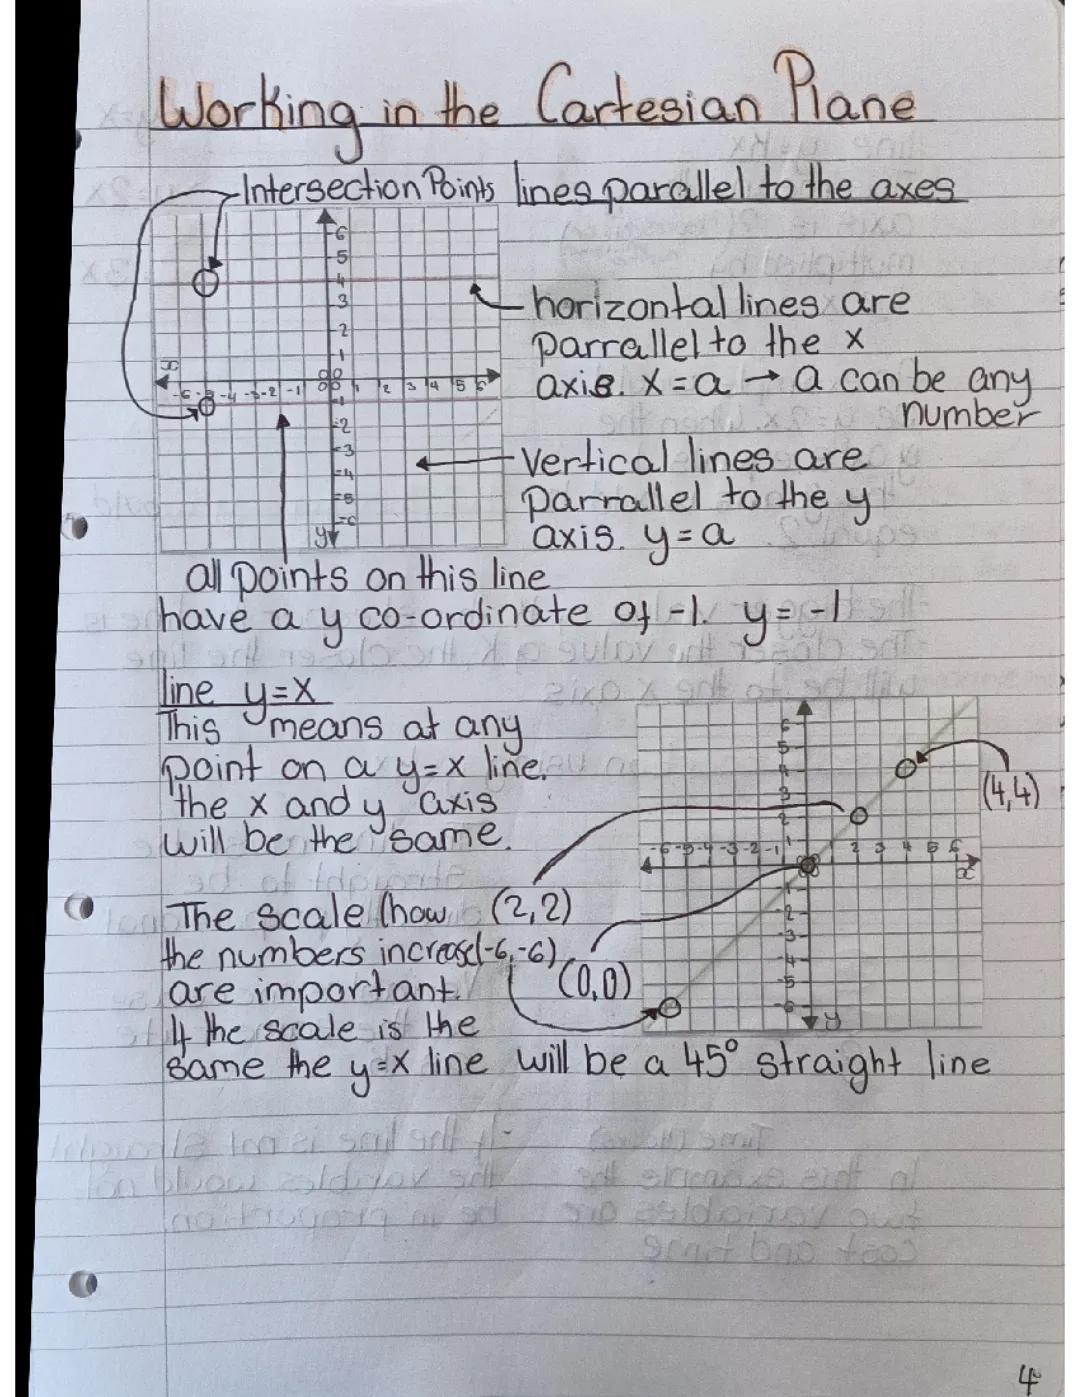 Working in the Cartesian Plane
Intersection Points lines parallel to the axes
6
5
4
3
2
1
x
-6 -5 -4 -3 -2 -1 0 1 2 3 4 5 6
-1
-2
-3
-4
-5
-6
y
horizontal lines are
parrallel to the x
axis. x = a → a can be any
number
vertical lines are
parrallel to the y
axis. y = a
all points on this line
have a y co-ordinate of -1. y = -1
line y=x
This means at any
point on a y=x line.
the x and y axis
will be the same.
6
5
4
3
2
1
-6 -5 -4 -3 -2 -1 2 3 4 5 6
x
-2
-3
-4
-5
-6
y
(4,4)
(2,2)
(-6,-6)
(0,0)
The scale (how
the numbers increase)
are important.
If the scale is the
same the y=x line will be a 45° straight line
4